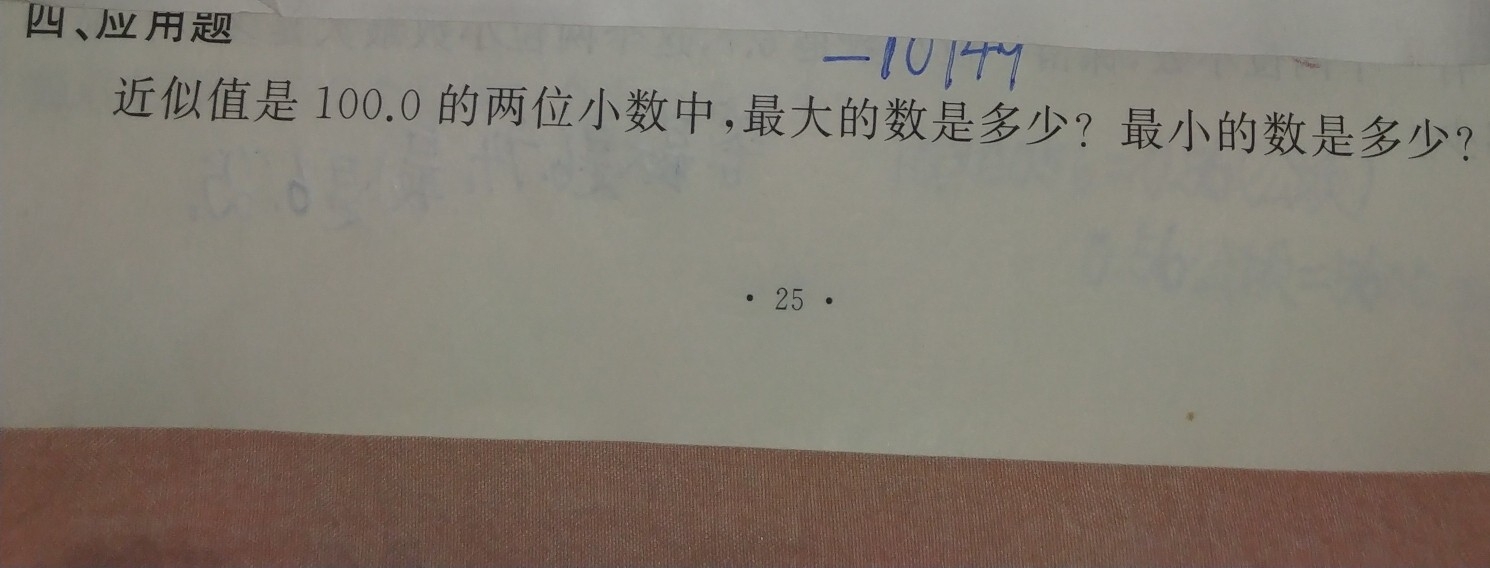 四、应用题
近似值是 100.0 的两位小数中,最大的数是多少? 最小的数是多少?
· 25 ·